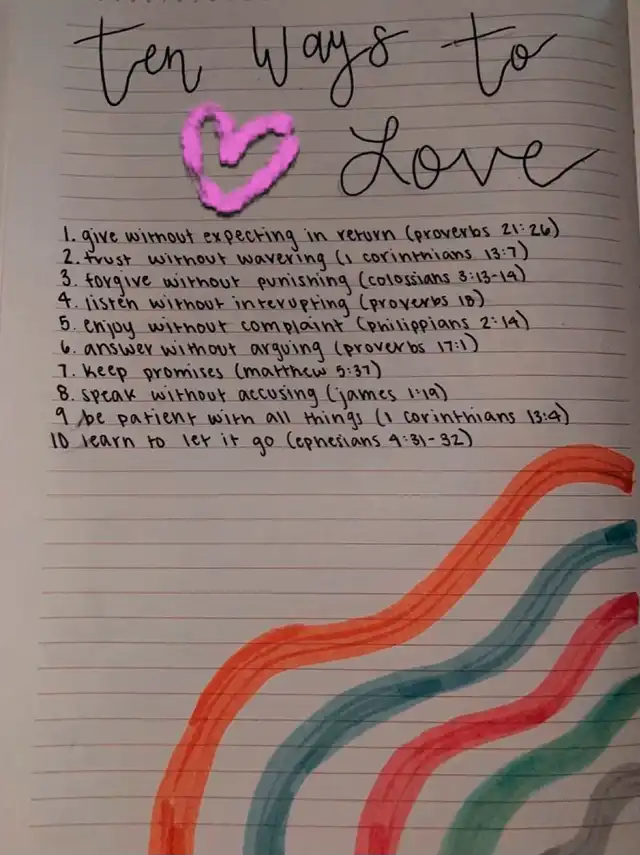 ten ways to
Love
1. give without expecting in return (proverbs 21:26)
2. trust without wavering (1 corinthians 13:7)
3. forgive without punishing (colossians 3:13-14)
4. listen without interupting (proverbs 18)
5. enjoy without complaint (philippians 2:14)
6. answer without arguing (proverbs 17:1)
7. keep promises (matthew 5:37)
8. speak without accusing (james 1:19)
9 be patient with all things (1 corinthians 13:4)
10 learn to let it go (ephesians 4:31-32)